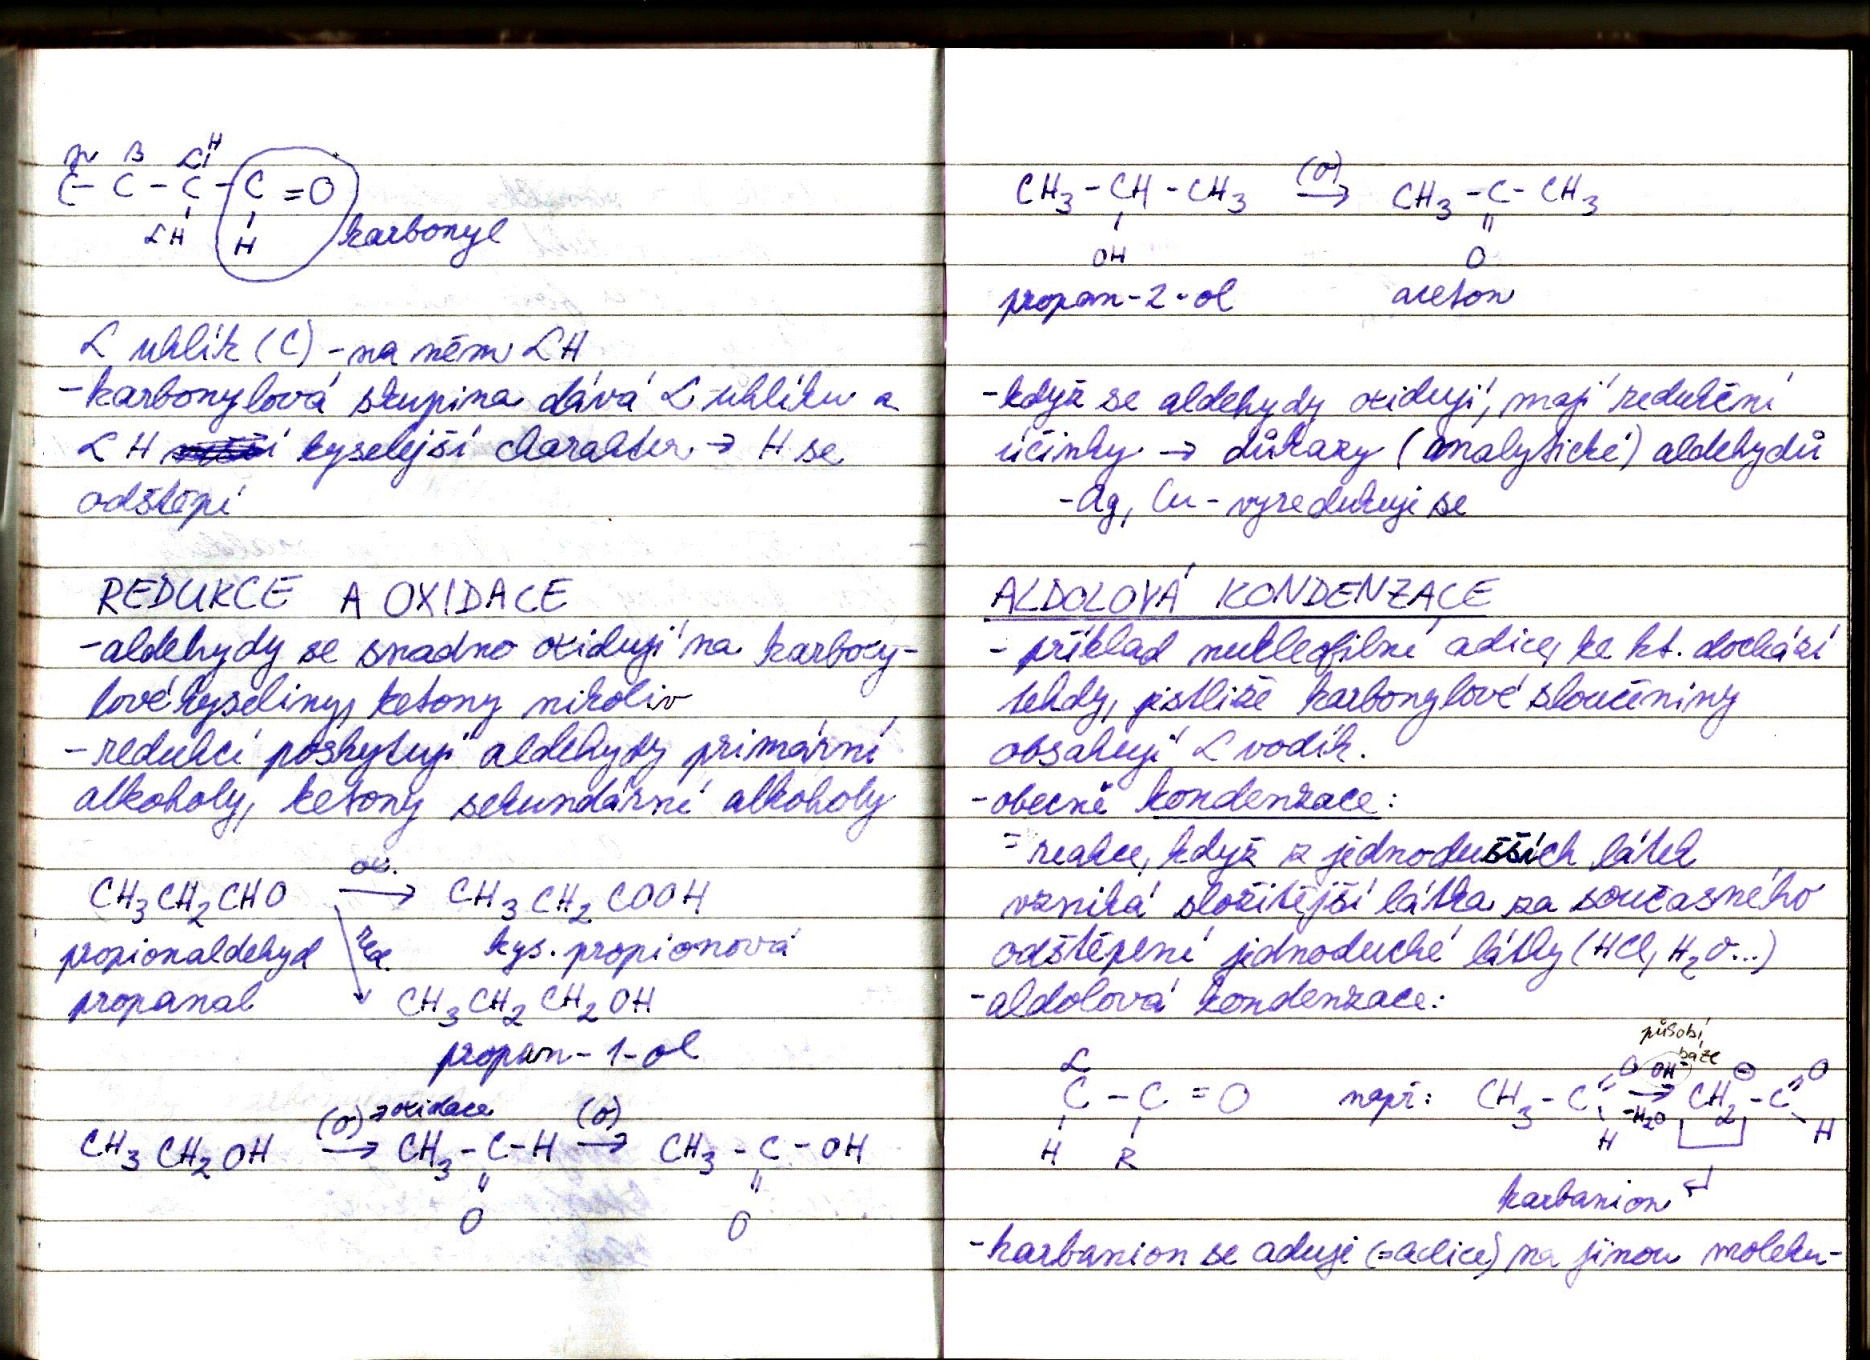 γ β α H
C - C - C - C = O
αH H karbonyl
α uhlík (C) - na něm αH
- karbonylová skupina dává α uhlíku a
αH kyselejší charakter → H se
odštěpí
REDUKCE A OXIDACE
- aldehydy se snadno oxidují na karboxy-
lové kyseliny, ketony nikoliv
- redukcí poskytují aldehydy primární
alkoholy, ketony sekundární alkoholy
ox.
CH3CH2CHO → CH3CH2COOH
propionaldehyd red. kys. propionová
propanal CH3CH2CH2OH
propan-1-ol
(O) → oxidace (O)
CH3CH2OH → CH3 - C - H → CH3 - C - OH
O O
(O)
CH3 - CH - CH3 → CH3 - C - CH3
OH O
propan-2-ol aceton
- když se aldehydy oxidují, mají redukční
účinky → důkazy (analytické) aldehydů
- Ag, Cu - vyredukuje se
ALDOLOVÁ KONDENZACE
- příklad nukleofilní adice, ke kt. dochází
tehdy, jestliže karbonylové sloučeniny
obsahují α vodík.
- obecně kondenzace:
= reakce, když z jednodušších látek
vzniká složitější látka za současného
odštěpení jednoduché látky (HCl, H2O...)
- aldolová kondenzace:
působí
báze
α O OH- ⊖ O
C - C = O např: CH3 - C → CH2 - C
-H2O
H R H H
karbanion
- karbanion se aduje (=adice) na jinou moleku-